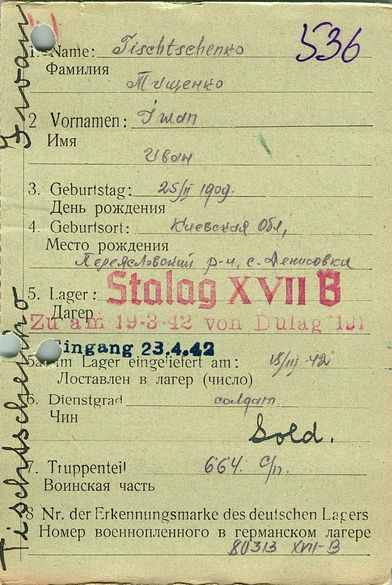 536
1. Name: Tischtschenko
Фамилия
Тищенко
2 Vornamen: Iwan
Имя
Иван
3. Geburtstag: 25/II 1909.
День рождения
4. Geburtsort: Киевская Обл,
Место рождения
Переясловский р-н, с. Денисовки
5. Lager: Stalag XVII B
Лагер:
Zu am 19-3-42 von Dulag
Eingang 23.4.42
5a. Im Lager eingeliefert am: 18/III 42
Доставлен в лагер (число)
6. Dienstgrad солдат
Чин
Sold.
7. Truppenteil 664. с/п.
Воинская часть
8 Nr. der Erkennungsmarke des deutschen Lagers
Номер военнопленного в германском лагере
80313 XVII-B
Tischtschenko Iwan